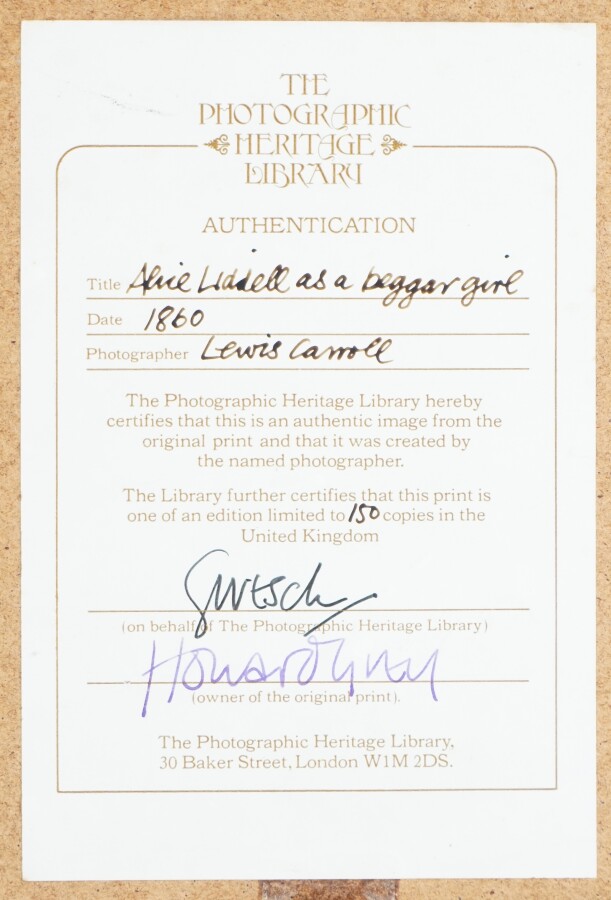 THE
PHOTOGRAPHIC
HERITAGE
LIBRARY
AUTHENTICATION
Title Alice Liddell as a beggar girl
Date 1860
Photographer Lewis Carroll
The Photographic Heritage Library hereby
certifies that this is an authentic image from the
original print and that it was created by
the named photographer.
The Library further certifies that this print is
one of an edition limited to 150 copies in the
United Kingdom
(on behalf of The Photographic Heritage Library)
Howard
(owner of the original print).
The Photographic Heritage Library,
30 Baker Street, London W1M 2DS.